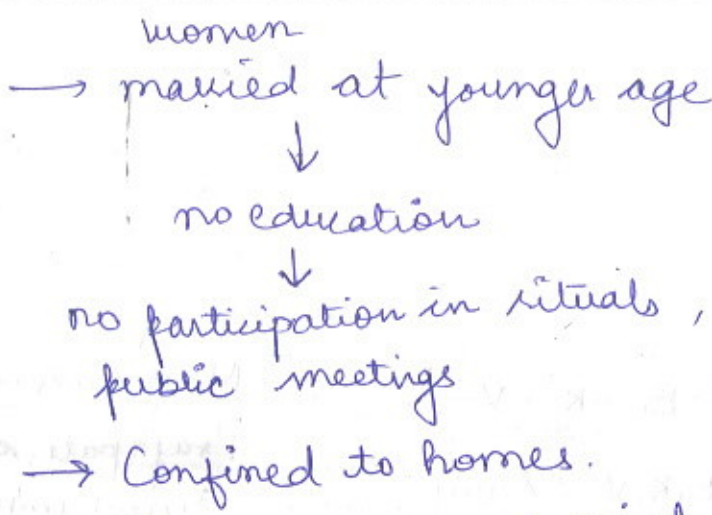 women
→ married at younger age
↓
no education
↓
no participation in rituals,
public meetings
→ Confined to homes.